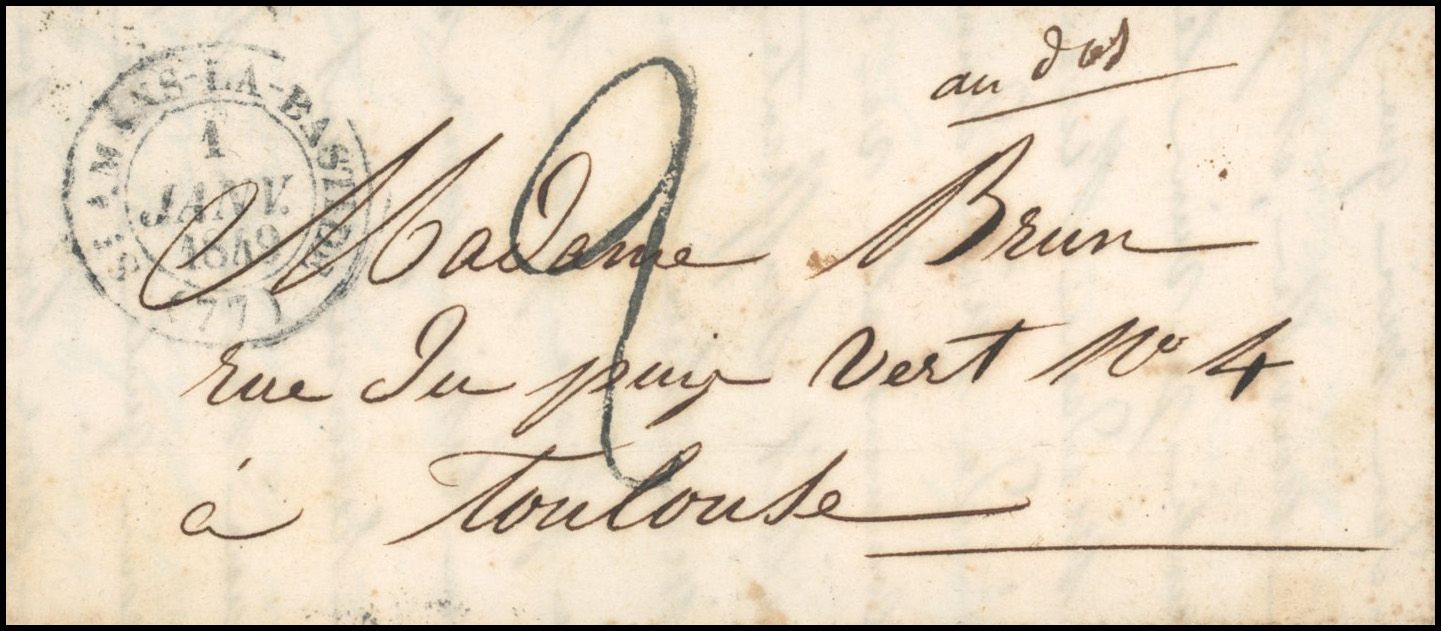 au dos
ST-AMANS-LA-BASTIDE
1
JANV.
1849
(77)
2
Madame Brun
rue du puy vert No 4
à Toulouse